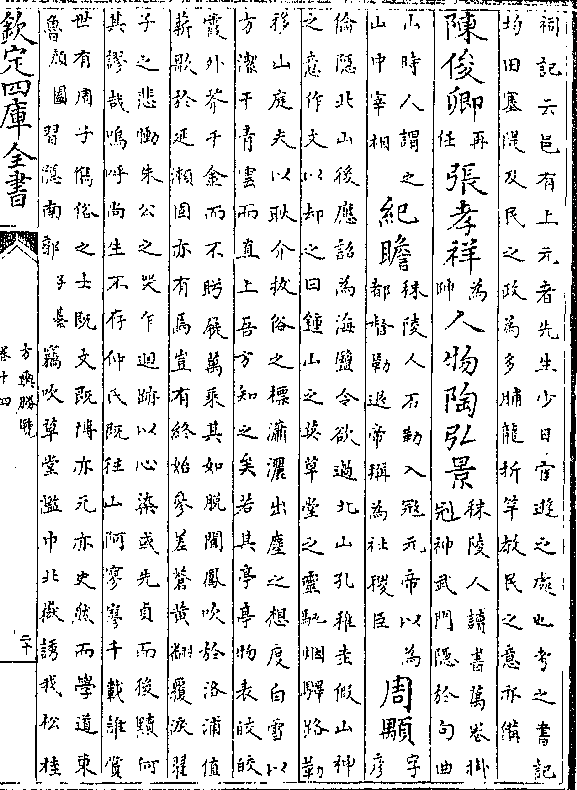 祠記云邑有上元者先生少日宦遊之處也考之書記
均田塞隄及民之政為多脯龍折竿教民之意亦備
陳俊卿再任張孝祥為帥人物陶弘景秣陵人讀書萬卷掛
冠神武門隱於句曲
山時人謂之
山中宰相紀瞻秣陵人石勒入寇元帝以為
都督勒退帝稱為社稷臣周顒字彥
倫隱北山後應詔為海鹽令欲過北山孔稚圭假山神
之意作文以却之曰鍾山之英草堂之靈馳烟驛路勒
移山庭夫以耿介拔俗之標瀟灑出塵之想度白雪以
方潔干青雲而直上吾方知之矣若其亭亭物表皎皎
霞外芥千金而不眄屣萬乘其如脫聞鳳吹於洛浦值
薪歌於延瀨固亦有焉豈有終始參差蒼黄翻覆淚翟
子之悲慟朱公之哭乍迴跡以心染或先貞而後黷何
其謬哉嗚呼尚生不存仲氏既往山阿寥寥千載誰賞
世有周子儁俗之士既文既博亦元亦史然而學道東
魯顔闔習隱南郭子綦竊吹草堂濫巾北嶽誘我松桂
欽定四庫全書
方輿勝覽
卷十四
二十